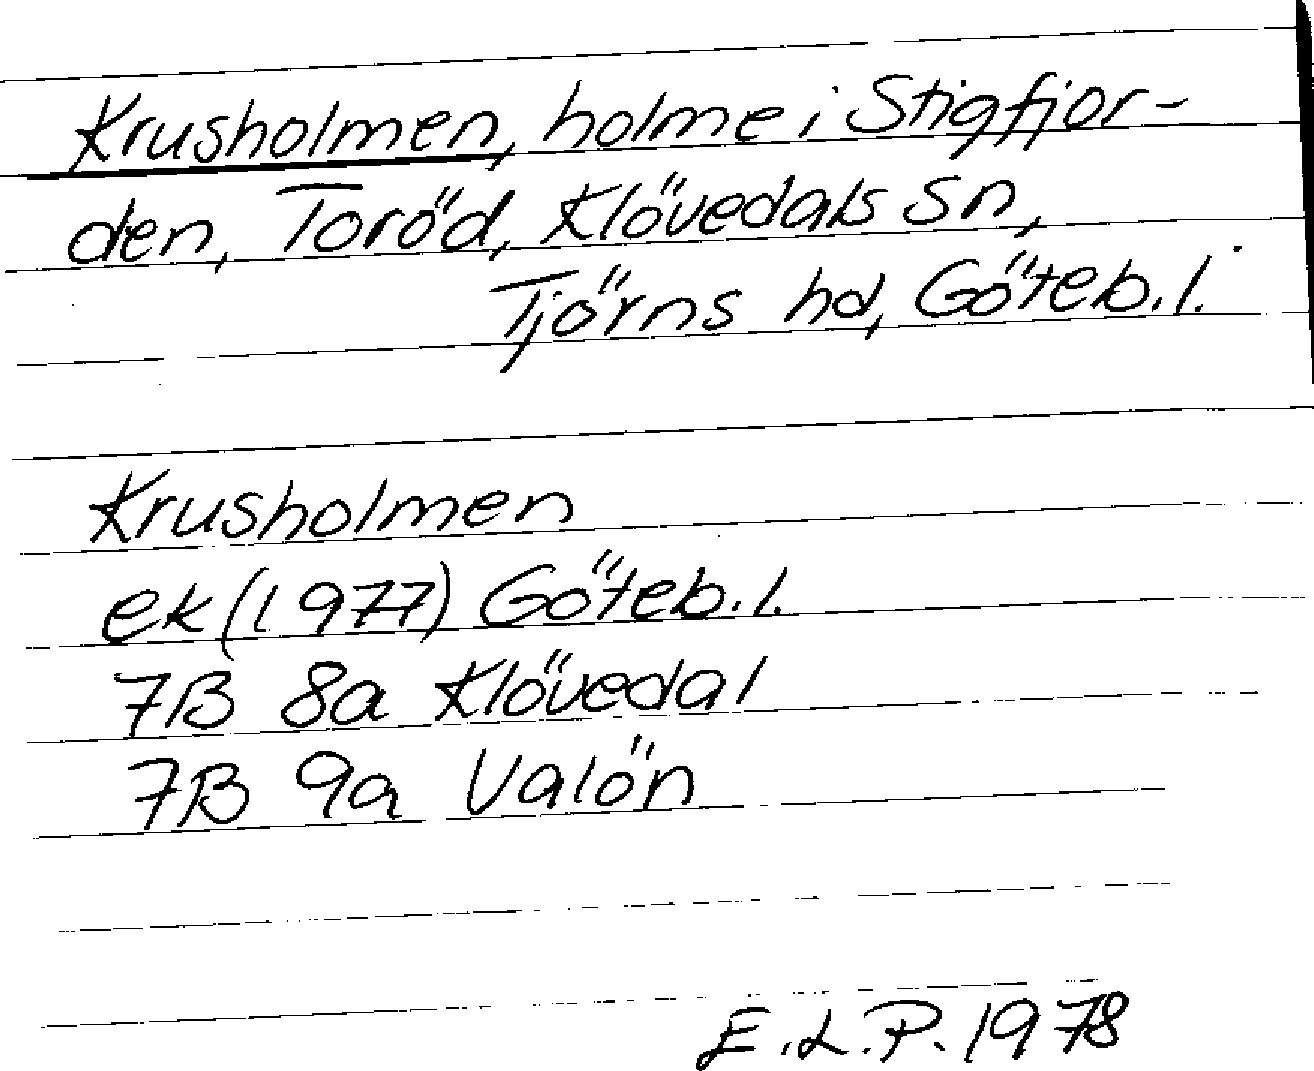 Krusholmen, holme i Stigfjor-
den, Toröd, Klövedals sn,
Tjörns hd, Göteb. l.
Krusholmen
ek (1977) Göteb. l.
7B 8a Klövedal
7B 9a Valön
E.L.P. 1978